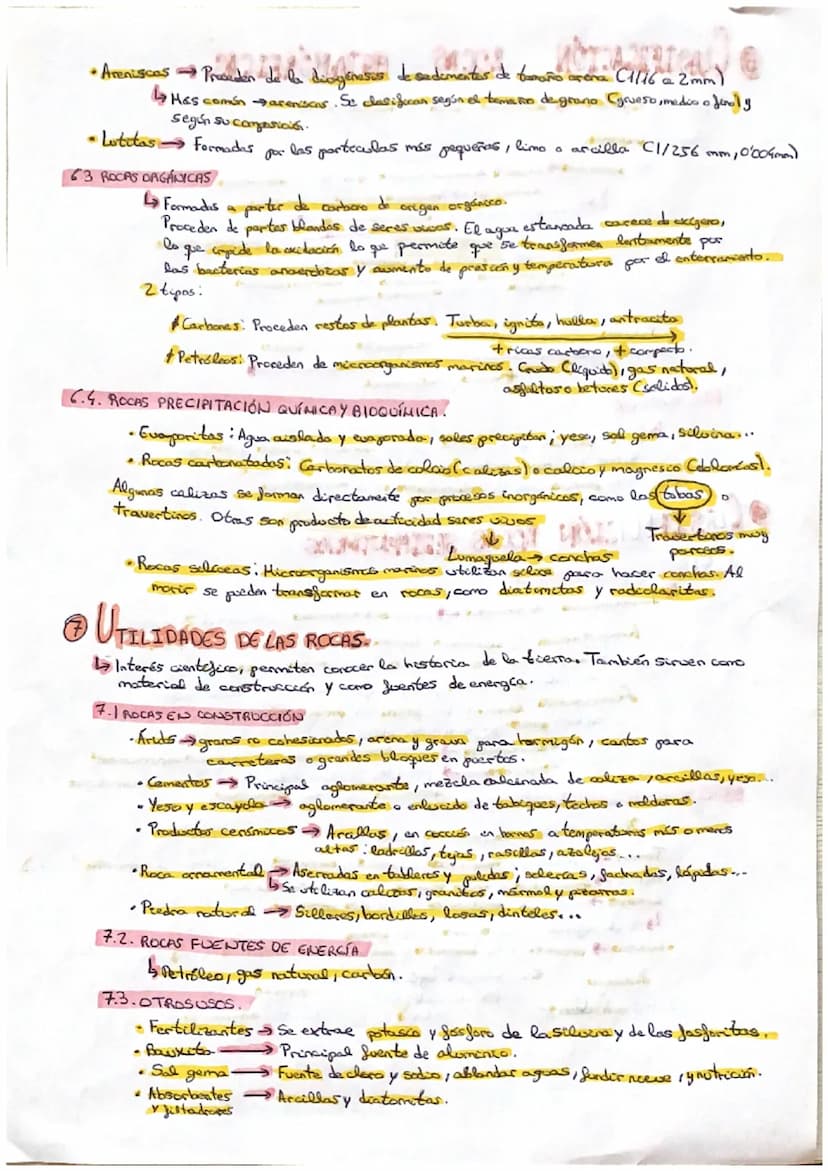 • Areniscas → Proceden de la diagénesis de sedimentos de tamaño arena (1/16 a 2mm)
↳ Más común → areniscas. Se clasifican según el tamaño de grano (grueso, medio o fino) y
según su composición.
• Lutitas → Formadas por las partículas más pequeñas, limo o arcilla (1/256 mm, 0'004mm)
6.3 ROCAS ORGÁNICAS
↳ Formadas a partir de carbono de origen orgánico.
Proceden de partes blandas de seres vivos. El agua estancada carece de oxígeno,
lo que impide la oxidación lo que permite que se transformen lentamente por
las bacterias anaerobias y aumento de presión y temperatura por el enterramiento.
2 tipos:
Carbones: Proceden restos de plantas. Turba, lignito, hulla, antracita
+ ricas carbono, + compacto.
Petróleos: Proceden de microorganismos marinos. Crudo (líquido), gas natural,
asfaltos o betunes (sólidos).
6.4. ROCAS PRECIPITACIÓN QUÍMICA Y BIOQUÍMICA.
• Evaporitas: Agua aislada y evaporada, sales precipitan; yeso, sal gema, silvina...
• Rocas carbonatadas: Carbonatos de calcio (calizas) o calcio y magnesio (dolomías).
Algunas calizas se forman directamente por procesos inorgánicos, como las tobas o
travertinos. Otras son producto de actividad seres vivos
Travertinos muy
porosos.
Lumaquela → conchas
• Rocas silíceas: Microorganismos marinos utilizan sílice para hacer conchas. Al
morir se pueden transformar en rocas, como diatomitas y radiolaritas.
7 UTILIDADES DE LAS ROCAS.
↳ Interés científico, permiten conocer la historia de la tierra. También sirven como
material de construcción y como fuentes de energía.
7.1 ROCAS EN CONSTRUCCIÓN
• Áridos → granos no cohesionados, arena y grava para hormigón, cantos para
carreteras o grandes bloques en puertos.
• Cementos → Principal aglomerante, mezcla calcinada de caliza, arcillas, yeso...
• Yeso y escayola → aglomerante o enlucido de tabiques, techos o molduras.
• Productos cerámicos → Arcillas, en cocción en hornos a temperaturas más o menos
altas: ladrillos, tejas, rasillas, azulejos...
• Roca ornamental → Aserradas en tableros y pulidas; soleras, fachadas, lápidas...
↳ Se utilizan calizas, granitos, mármol y pizarras.
• Piedra natural → Sillares, bordillos, losas, dinteles...
7.2. ROCAS FUENTES DE ENERGÍA
↳ Petróleo, gas natural, carbón.
7.3. OTROS USOS.
• Fertilizantes → Se extrae potasio y fósforo de la silvina y de las fosforitas.
• Bauxita → Principal fuente de aluminio.
• Sal gema → Fuente de cloro y sodio, ablandar aguas, fundir nieve, y nutrición.
• Absorbentes → Arcillas y diatomitas.
y filtradores